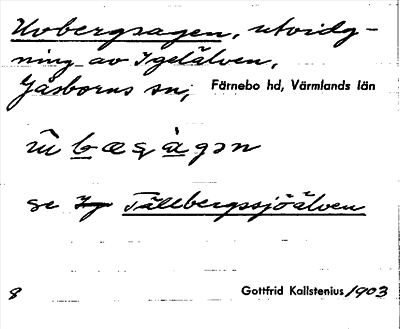 Uvbergsagen, utvidg-
ning av Igelälven,
Gåsborns sn; Färnebo hd, Värmlands län
se Tällebergssjöälven
8 Gottfrid Kallstenius 1903